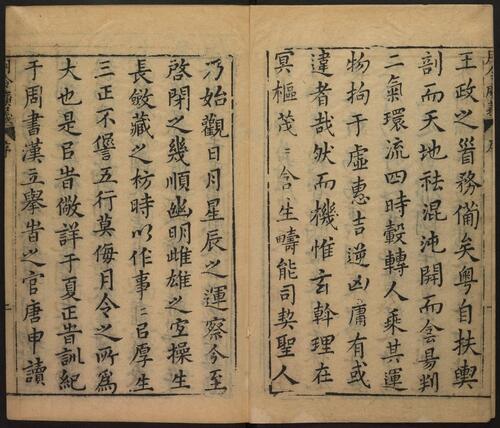 王政之旹務備矣粵自扶輿
剖而天地祛混沌開而侌昜判
二氣環流四時轂轉人乘其運
物拘于虛惠吉逆凶庸有或
違者哉然而機惟玄斡理在
冥樞茂〻含生疇能司契聖人
乃始觀日月星辰之運察分至
啓閉之幾順幽明雌雄之宜操生
長斂藏之枋時以作事〻㠯厚生
三正不諐五行莫侮月令之所為
大也是㠯旹儆詳于夏正旹訓紀
于周書漢立舉旹之官唐申讀